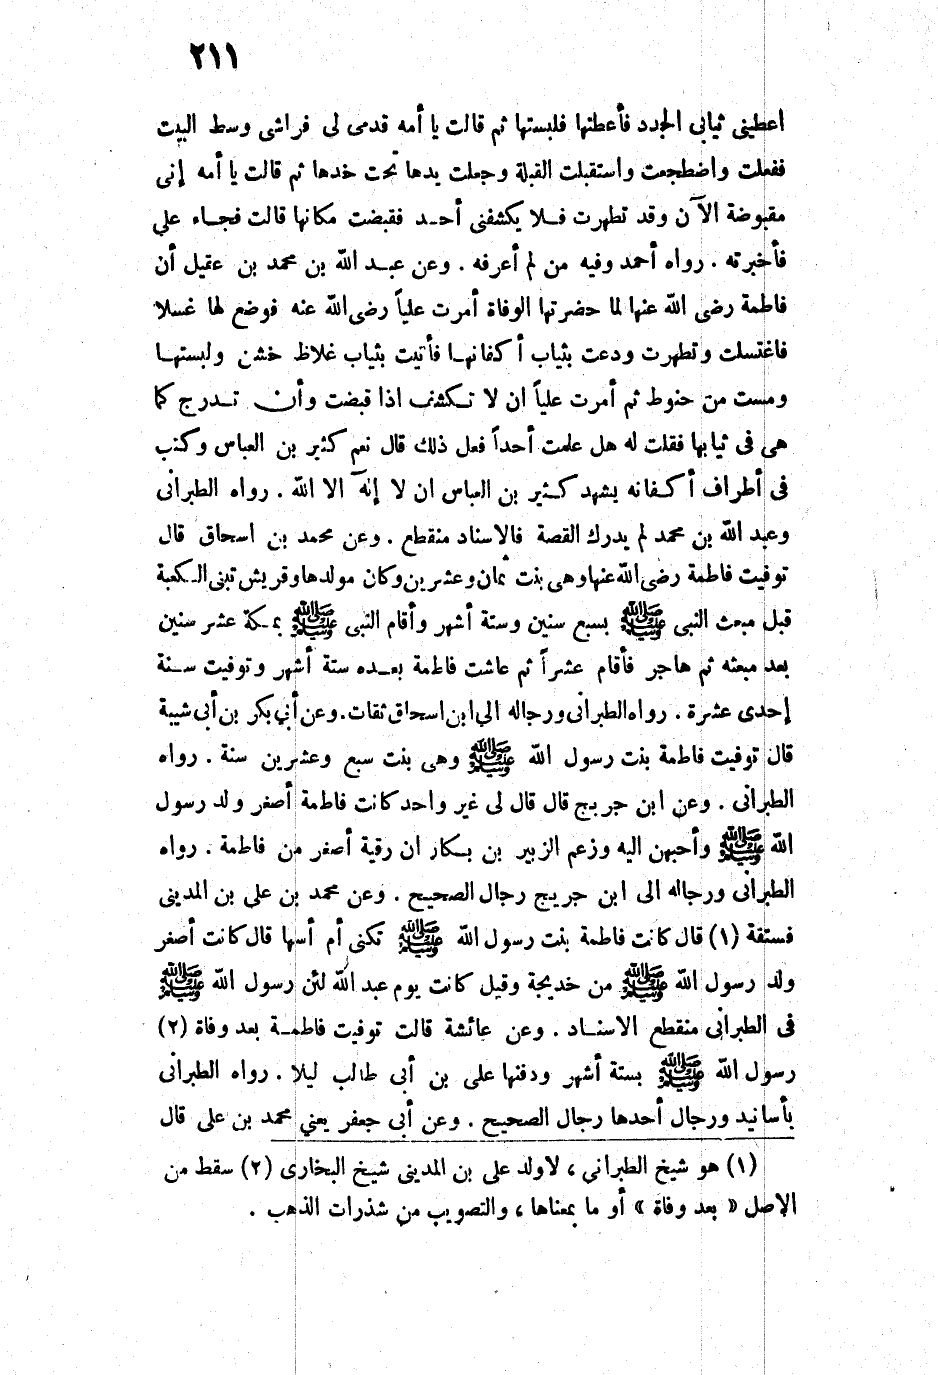 ٢١١
اعطيني ثيابي الجدد فأعطتها فلبستها ثم قالت يا أمه قدمى لى فراشى وسط البيت
ففعلت واضطجعت واستقبلت القبلة وجعلت يدها تحت خدها ثم قالت يا أمه إنى
مقبوضة الآن وقد تطهرت فلا يكشفنى أحد فقبضت مكانها قالت فجاء علي
فأخبرته . رواه أحمد وفيه من لم أعرفه . وعن عبد الله بن محمد بن عقيل أن
فاطمة رضى الله عنها لما حضرتها الوفاة أمرت علياً رضى الله عنه فوضع لها غسلا
فاغتسلت وتطهرت ودعت بثياب أكفانها فأتيت بثياب غلاظ خشن ولبستها
ومست من حنوط ثم أمرت علياً ان لا تكشف اذا قبضت وأن تدرج كما
هى فى ثيابها فقلت له هل علمت أحداً فعل ذلك قال نعم كثير بن العباس وكتب
فى أطراف أكفانه يشهد كثير بن العباس ان لا إله الا الله . رواه الطبرانى
وعبد الله بن محمد لم يدرك القصة فالاسناد منقطع . وعن محمد بن اسحاق قال
توفيت فاطمة رضى الله عنها وهى بنت ثمان وعشرين وكان مولدها وقريش تبنى الكعبة
قبل مبعث النبى ﷺ بسبع سنين وستة أشهر وأقام النبى ﷺ بمكة عشر سنين
بعد مبعثه ثم هاجر فأقام عشراً ثم عاشت فاطمة بعده ستة أشهر وتوفيت سنة
إحدى عشرة . رواه الطبرانى ورجاله الي ابن اسحاق ثقات . وعن أبي بكر بن أبى شيبة
قال توفيت فاطمة بنت رسول الله ﷺ وهى بنت سبع وعشرين سنة . رواه
الطبرانى . وعن ابن جريج قال قال لى غير واحد كانت فاطمة أصغر ولد رسول
الله ﷺ وأحبهن اليه وزعم الزبير بن بكار ان رقية أصغر من فاطمة . رواه
الطبرانى ورجاله الى ابن جريج رجال الصحيح . وعن محمد بن على بن المدينى
فستقة (١) قال كانت فاطمة بنت رسول الله ﷺ تكنى أم أسها قال كانت أصغر
ولد رسول الله ﷺ من خديجة وقيل كانت يوم عبد الله لئن رسول الله ﷺ
فى الطبرانى منقطع الاسناد . وعن عائشة قالت توفيت فاطمة بعد وفاة (٢)
رسول الله ﷺ بستة أشهر ودفنها على بن أبى طالب ليلا . رواه الطبرانى
بأسانيد ورجال أحدها رجال الصحيح . وعن أبى جعفر يعني محمد بن على قال
(١) هو شيخ الطبراني ، لاولد على بن المدينى شيخ البخارى (٢) سقط من
الاصل « بعد وفاة » أو ما بمعناها ، والتصويب من شذرات الذهب .